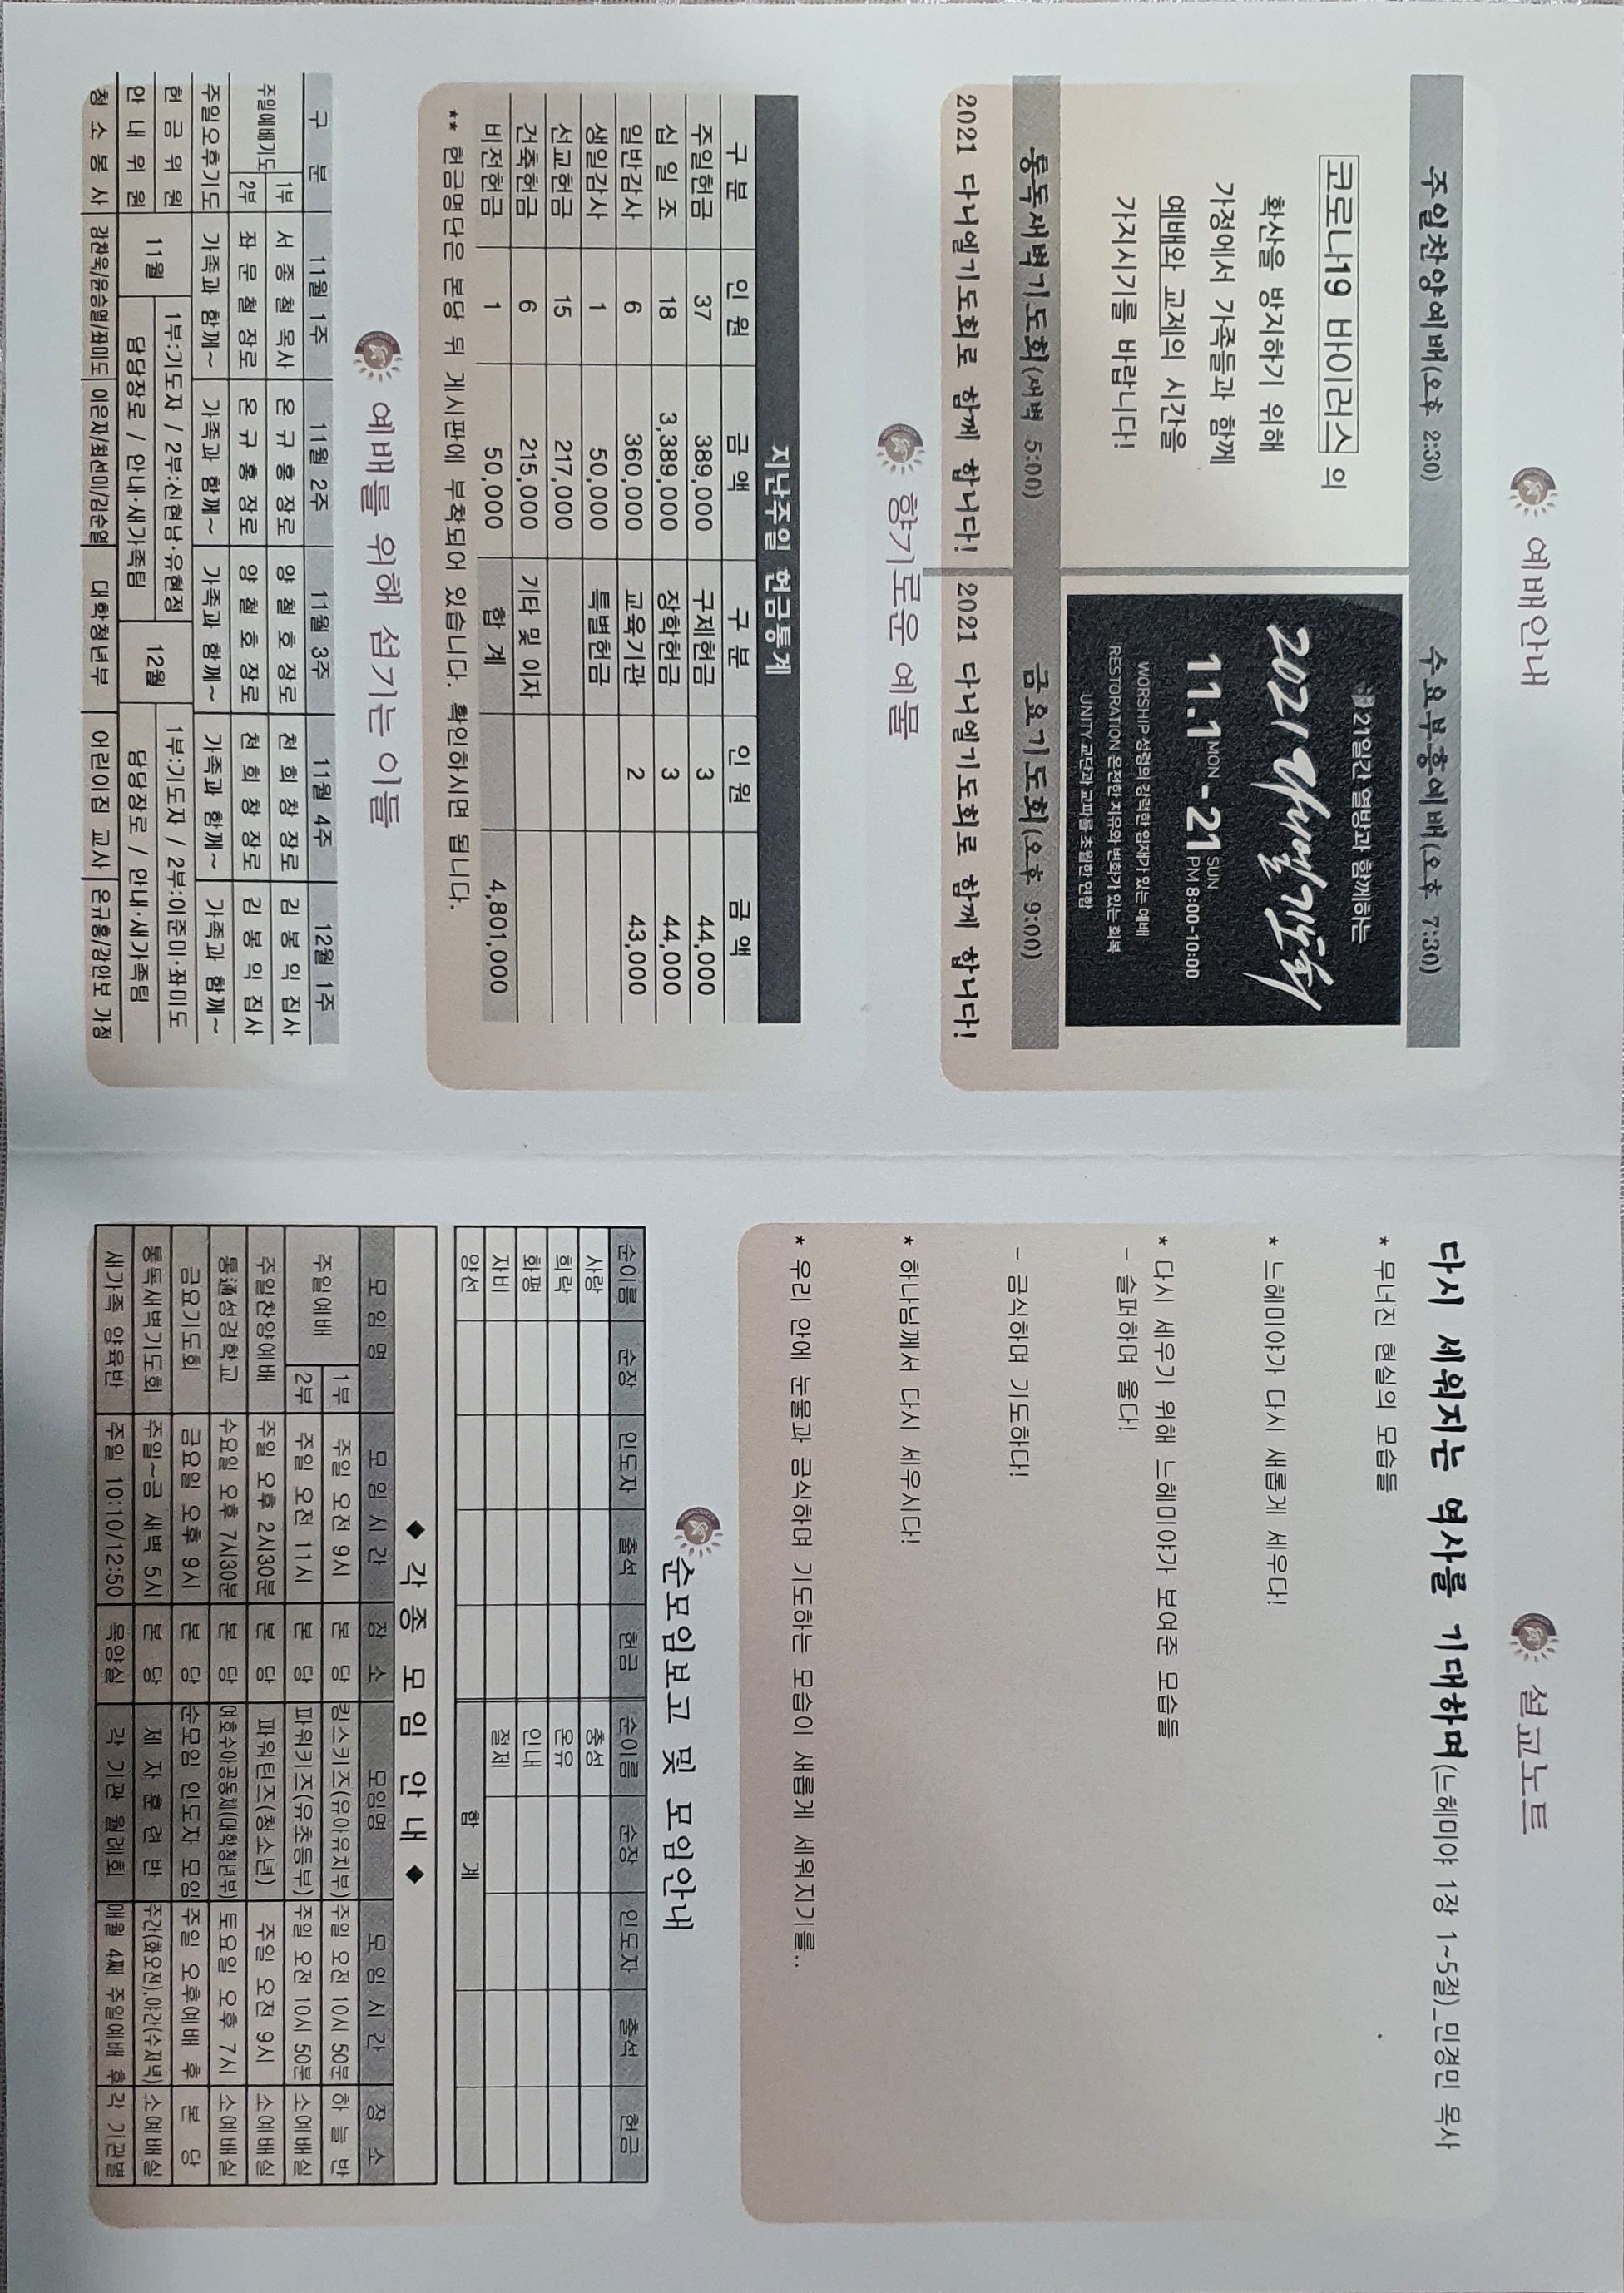 예배안내
주일찬양예배(오후 2:30) 수요부흥예배(오후 7:30)
코로나19 바이러스 의
확산을 방지하기 위해
가정에서 가족들과 함께
예배와 교제의 시간을
가지시기를 바랍니다!
21일간 열방과 함께하는
2021 다니엘기도회
11.1 MON - 21 SUN PM 8:00-10:00
WORSHIP 성령의 강력한 임재가 있는 예배
RESTORATION 온전한 치유와 변화가 있는 회복
UNITY 교단과 교파를 초월한 연합
통독새벽기도회(새벽 5:00) 금요기도회(오후 9:00)
2021 다니엘기도회로 함께 합니다! 2021 다니엘기도회로 함께 합니다!
향기로운 예물
지난주일 헌금통계
구 분 인 원 금 액 구 분 인 원 금 액
주일헌금 37 389,000 구제헌금 3 44,000
십 일 조 18 3,389,000 장학헌금 3 44,000
일반감사 6 360,000 교육기관 2 43,000
생일감사 1 50,000 특별헌금
선교헌금 15 217,000
건축헌금 6 215,000 기타 및 이자
비전헌금 1 50,000 합 계 4,801,000
** 헌금명단은 본당 뒤 게시판에 부착되어 있습니다. 확인하시면 됩니다.
예배를 위해 섬기는 이들
구 분 11월 1주 11월 2주 11월 3주 11월 4주 12월 1주
주일예배기도 1부 서 종 철 목사 온 규 홍 장로 양 철 호 장로 천 희 창 장로 김 봉 익 집사
2부 좌 문 철 장로 온 규 홍 장로 양 철 호 장로 천 희 창 장로 김 봉 익 집사
주일오후기도 가족과 함께~ 가족과 함께~ 가족과 함께~ 가족과 함께~ 가족과 함께~
헌 금 위 원 11월 1부:기도자 / 2부:신현남·유현정 12월 1부:기도자 / 2부:이준미·좌미도
안 내 위 원 담당장로 / 안내·새가족팀 담당장로 / 안내·새가족팀
청 소 봉 사 김찬욱/윤승열/좌미도 이은지/최선미/김순열 대학청년부 어린이집 교사 온규홍/강안보 가정
설교노트
다시 세워지는 역사를 기대하며(느헤미야 1장 1~5절)_민경민 목사
* 무너진 현실의 모습들
* 느헤미야가 다시 새롭게 세우다!
* 다시 세우기 위해 느헤미야가 보여준 모습들
- 슬퍼하며 울다!
- 금식하며 기도하다!
* 하나님께서 다시 세우시다!
* 우리 안에 눈물과 금식하며 기도하는 모습이 새롭게 세워지기를..
순모임보고 및 모임안내
순이름 순장 인도자 출석 헌금 순이름 순장 인도자 출석 헌금
사랑 충성
희락 온유
화평 인내
자비 절제
양선 합 계
◆ 각종 모임 안내 ◆
모 임 명 모 임 시 간 장 소 모임명 모 임 시 간 장 소
주일예배 1부 주일 오전 9시 본 당 킹스키즈(유아유치부) 주일 오전 10시 50분 하 늘 반
2부 주일 오전 11시 본 당 파워키즈(유초등부) 주일 오전 10시 50분 소예배실
주일찬양예배 주일 오후 2시30분 본 당 파워틴즈(청소년) 주일 오전 9시 소예배실
통通성경학교 수요일 오후 7시30분 본 당 여호수아공동체(대학청년부) 토요일 오후 7시 소예배실
금요기도회 금요일 오후 9시 본 당 순모임 인도자 모임 주일 오후예배 후 본 당
통독새벽기도회 주일~금 새벽 5시 본 당 제 자 훈 련 반 주간(화오전),야간(수저녁) 소예배실
새가족 양육반 주일 10:10/12:50 목양실 각 기관 월례회 매월 4째 주일예배 후 각 기관별